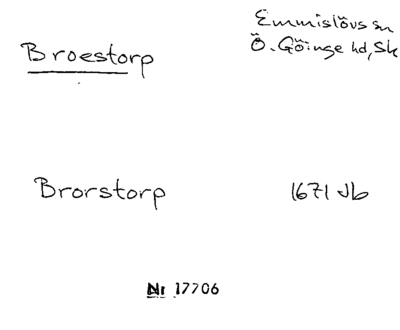 Broestorp
Emmislövs sn
Ö. Göinge hd, Sk
Brorstorp
1671 Jb
Nr 17706